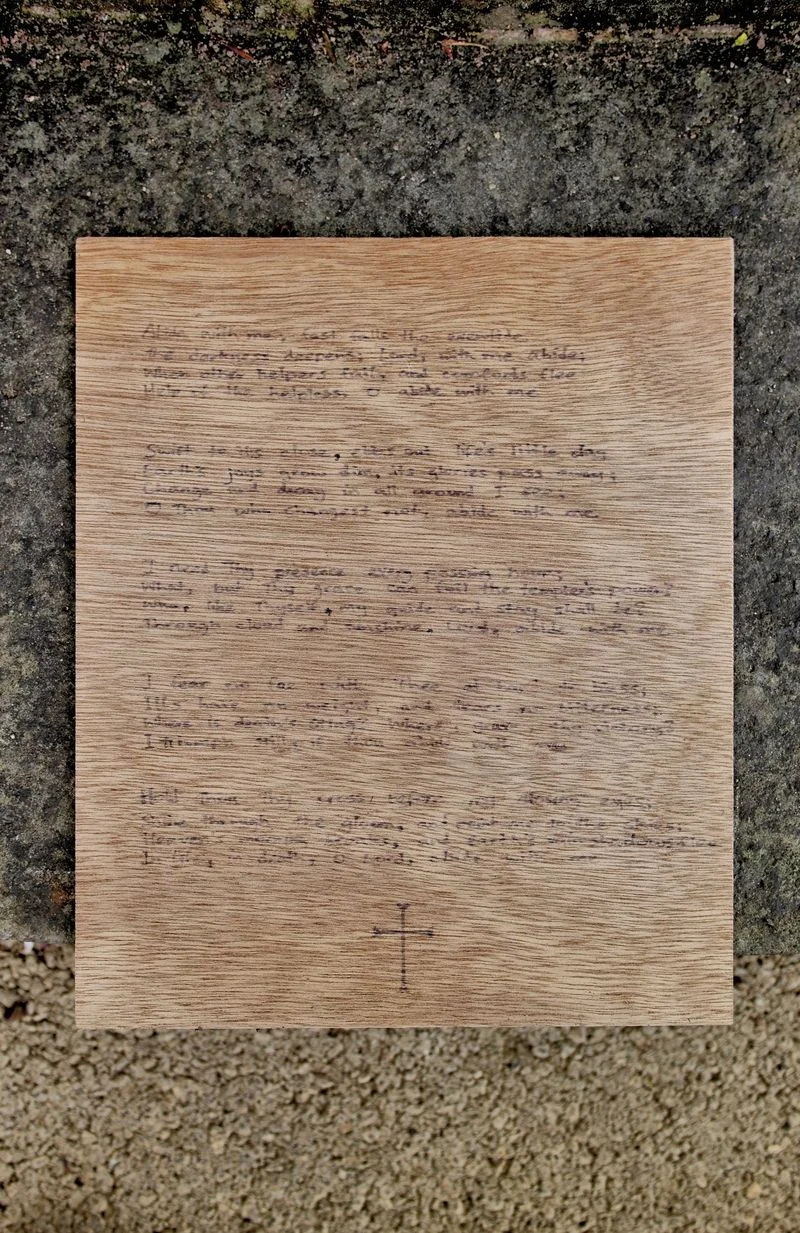 Abide with me, fast falls the eventide
the darkness deepens, Lord, with me abide;
when other helpers fail, and comforts flee
Help of the helpless, O abide with me

Swift to its close, ebbs out life's little day
Earth's joys grow dim, its glories pass away;
Change and decay in all around I see,
O Thou who changest not, abide with me.

I need Thy presence every passing hour,
What, but Thy grace can foil the tempter's power?
Who, like Thyself, my guide and stay shall be?
Through cloud and sunshine, Lord, abide with me

I fear no foe with Thee at hand to bless;
Ills have no weight, and tears no bitterness;
Where is death's sting? Where, grave, thy victory?
I triumph still, if Thou abide with me

Hold Thou Thy cross before my closing eyes,
through the gloom, and point me to the skies,
Heaven's morning breaks, and earth's vain shadows flee
In life, in death, O Lord, abide with me